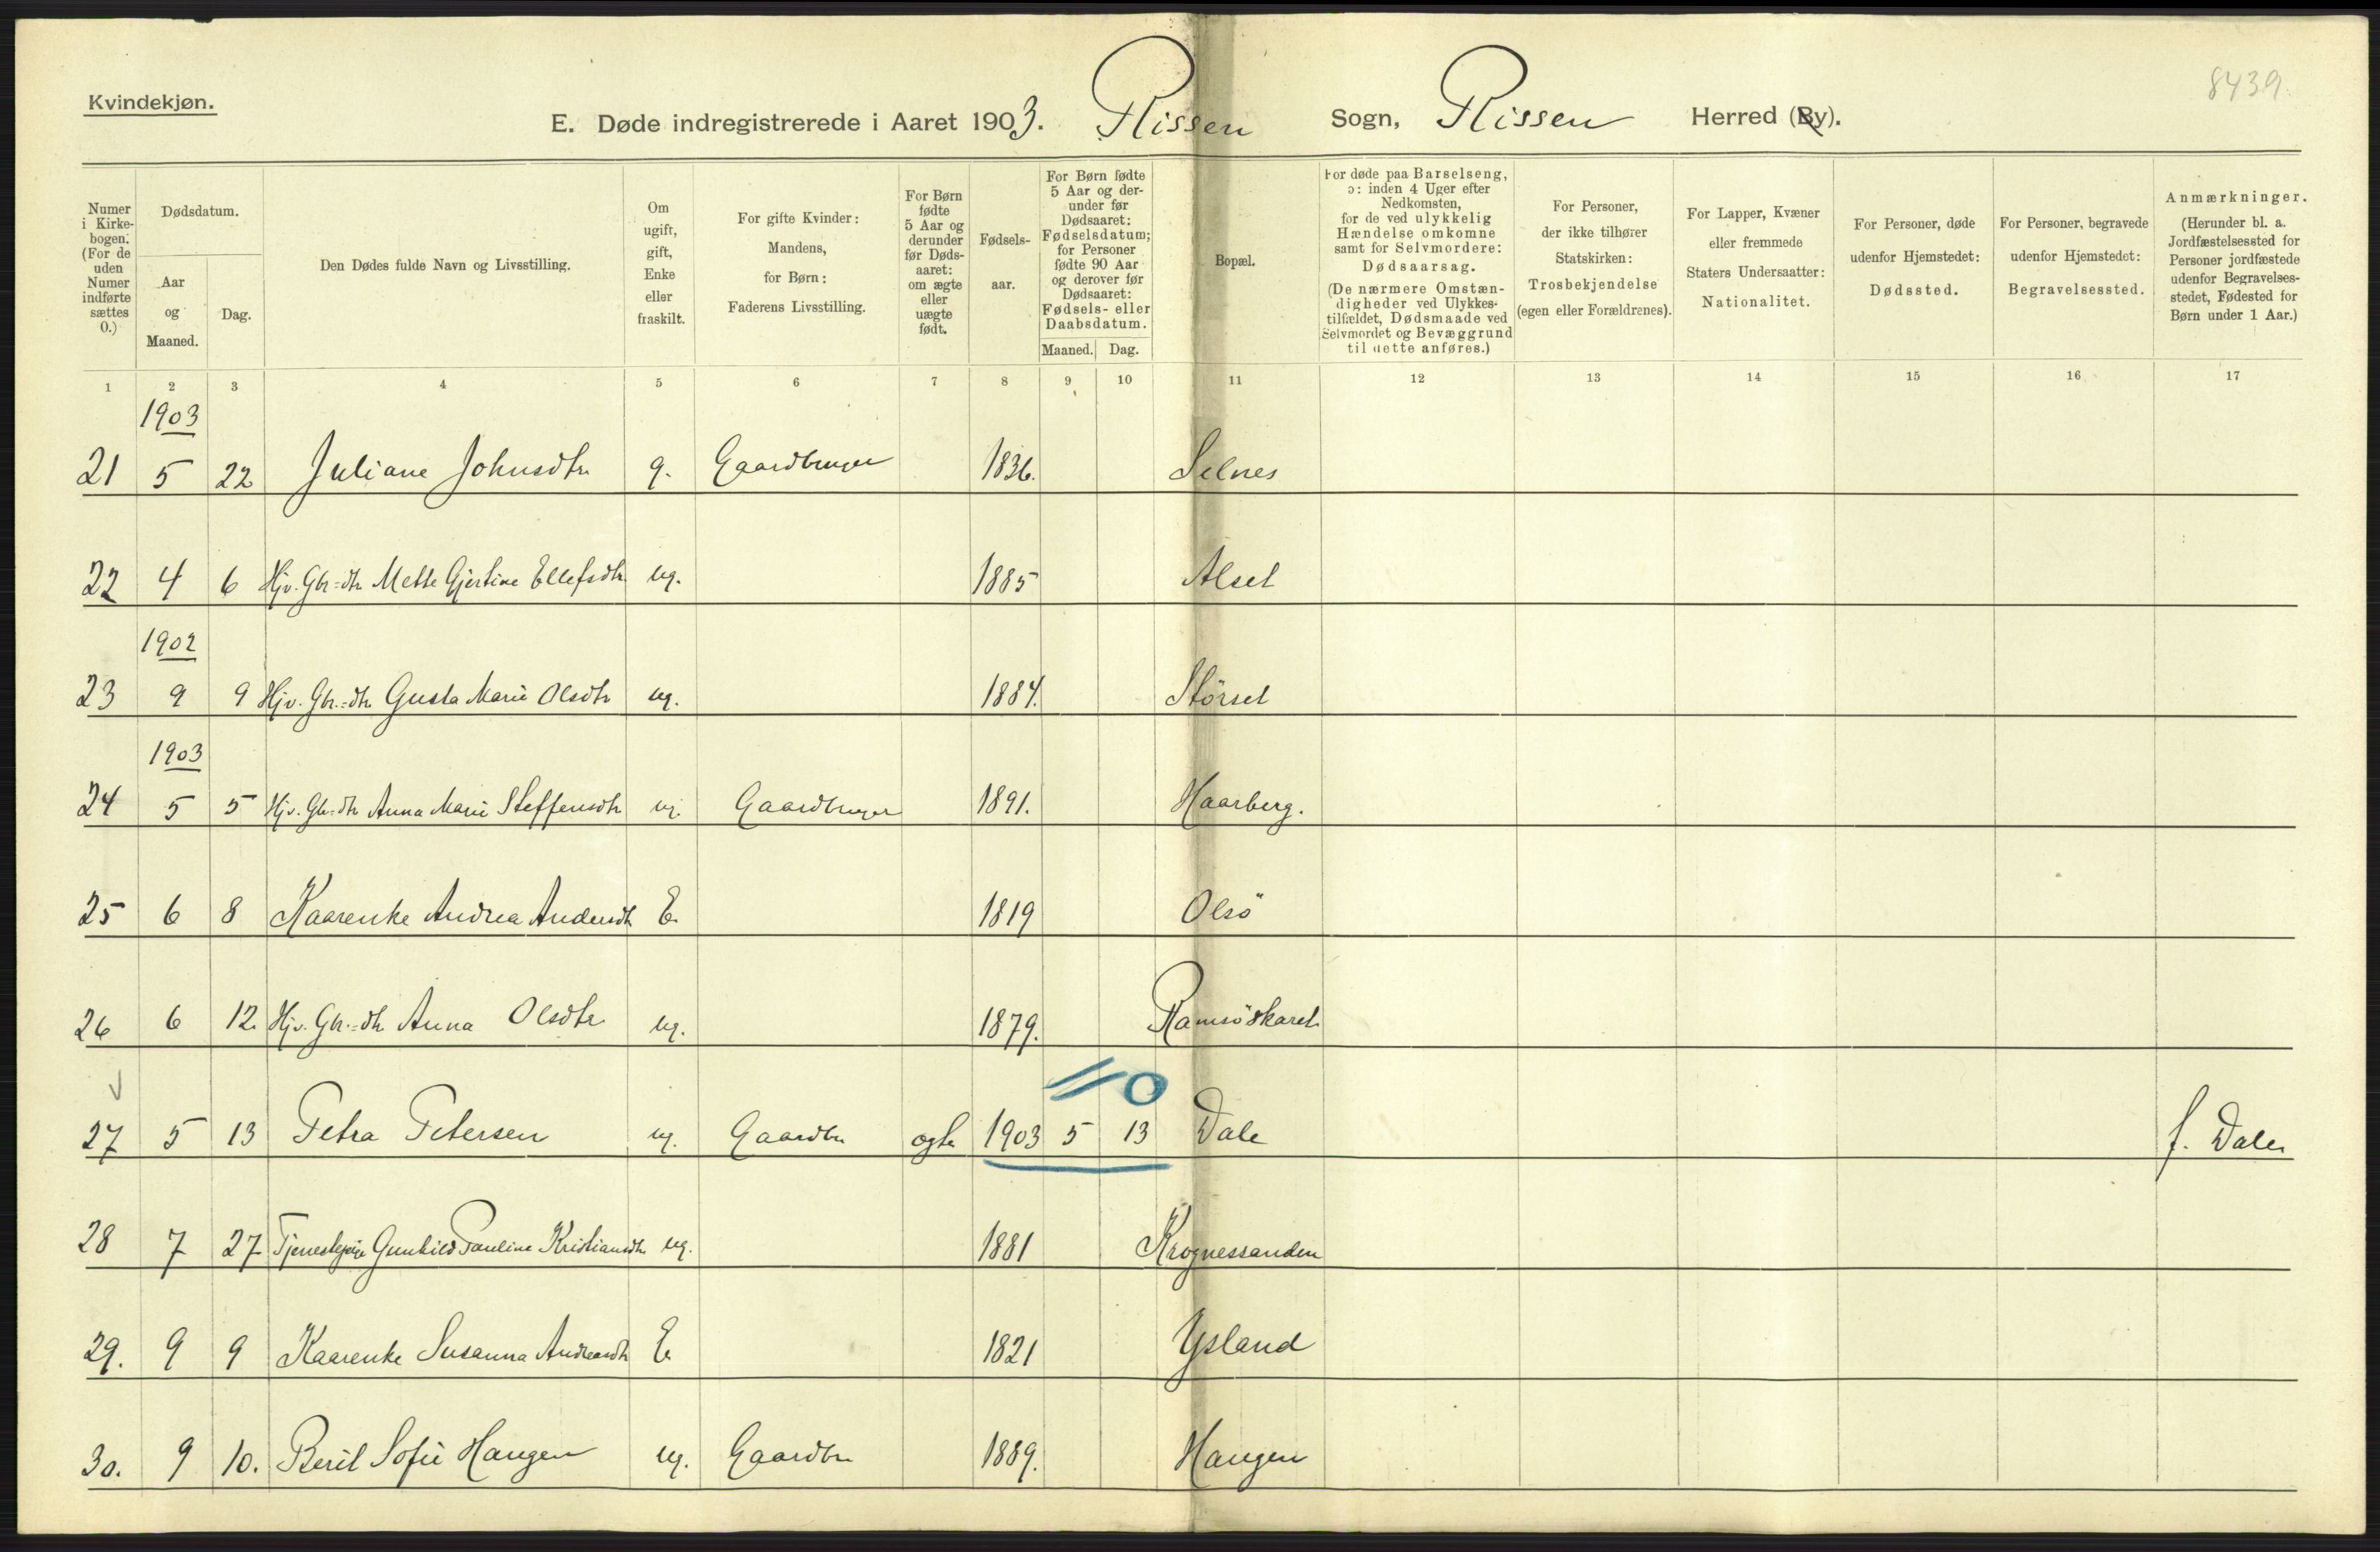 8439.
Kvindekjøn.
E. Døde indregistrerede i Aaret 1903. Rissen Sogn, Rissen Herred (By).
Numer i Kirkebogen. (For de uden Numer indførte sættes 0.)
Dødsdatum.
Aar og Maaned.
Dag.
Den Dødes fulde Navn og Livsstilling.
Om ugift, gift, Enke eller fraskilt.
For gifte Kvinder: Mandens, for Børn: Faderens Livsstilling.
For Børn fødte 5 Aar og derunder før Dødsaaret: om ægte eller uægte født.
Fødselsaar.
For Børn fødte 5 Aar og derunder før Dødsaaret: Fødselsdatum; for Personer fødte 90 Aar og derover før Dødsaaret: Fødsels- eller Daabsdatum.
Maaned. Dag.
Bopæl.
For døde paa Barselseng, ɔ: inden 4 Uger efter Nedkomsten, for de ved ulykkelig Hændelse omkomne samt for Selvmordere: Dødsaarsag. (De nærmere Omstændigheder ved Ulykkestilfældet, Dødsmaade ved Selvmordet og Bevæggrund til dette anføres.)
For Personer, der ikke tilhører Statskirken: Trosbekjendelse (egen eller Forældrenes).
For Lapper, Kvæner eller fremmede Staters Undersaatter: Nationalitet.
For Personer, døde udenfor Hjemstedet: Dødssted.
For Personer, begravede udenfor Hjemstedet: Begravelsessted.
Anmærkninger. (Herunder bl. a. Jordfæstelsessted for Personer jordfæstede udenfor Begravelsesstedet, Fødested for Børn under 1 Aar.)
1 2 3 4 5 6 7 8 9 10 11 12 13 14 15 16 17
1903
21 5 22 Juliane Johnsdtr g. Gaardbruger 1836. Selnes
22 4 6 Hjv. Gbr=dtr Mette Gjertine Ellefsdtr ug. 1885 Alset
1902
23 9 9 Hjv. Gbr.=dtr Gusta Marie Olsdtr ug. 1884. Störset
1903
24 5 5 Hjv. Gbr=dtr Anna Marie Steffensdtr ug. Gaardbruger 1891. Haarberg.
25 6 8 Kaarenke Andrea Andersdtr E 1819 Olsö
26 6 12 Hjv. Gbr.=dtr Anna Olsdtr ug. 1879. Ramsöskaret
0
27 5 13 Petra Petersen ug. Gaardbr ægte 1903 5 13 Dale f. Dale
28 7 27 Tjenestepige Gunhild Pauline Kristiansdtr ug. 1881 Krognessanden
29. 9 9 Kaarenke Susanna Andreasdtr E 1821 Ysland
30. 9 10. Beril Sofie Haugen ug. Gaardbr 1889. Haugen